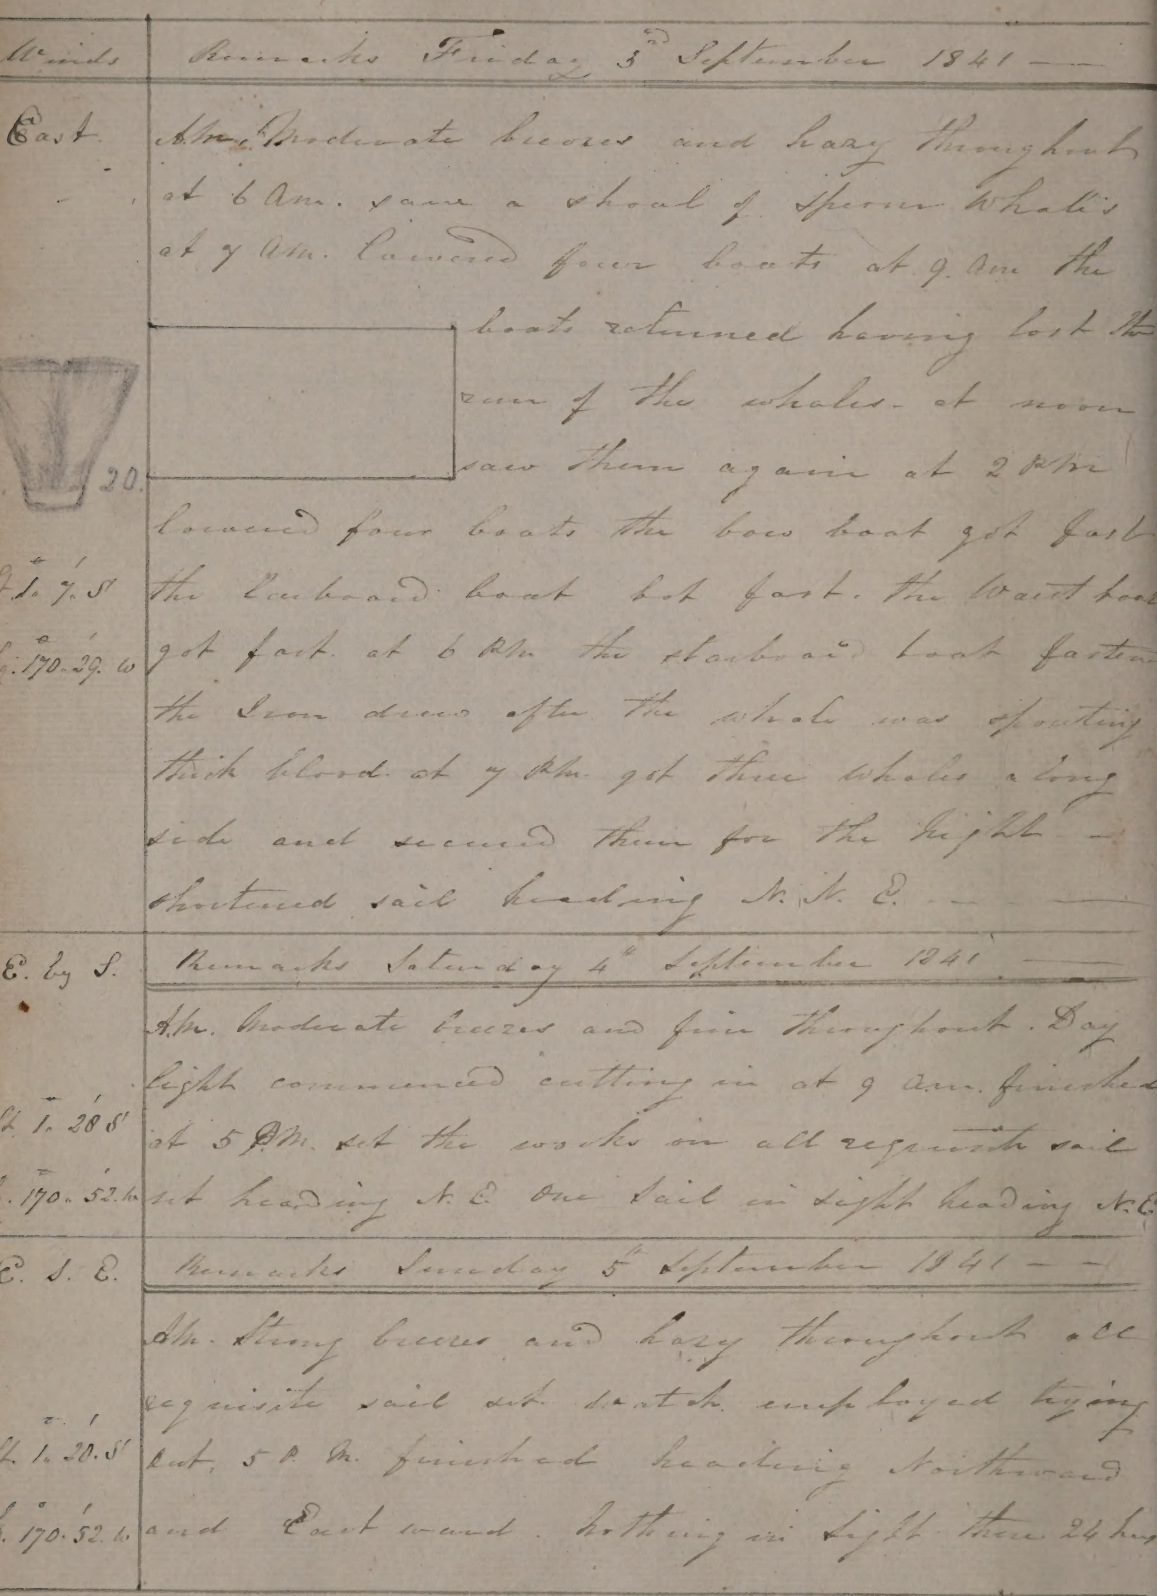 Winds Remarks Friday 3rd September 1841
East. A.M. Moderate breezes and hazy throughout
at 6 Am. saw a shoal of Sperm Whale's
at 7 Am. Lowered four boats at 9. Am the
boats returned having lost the
run of the whales. at noon
saw them again at 2 PM
20.
lowered four boats the bow boat got fast
the Larboard boat got fast. the Waist boat
1. 7. S
got fast. at 6 PM the starboard boat fasten
170. 29. W
the Iron drew after the whale was spouting
thick blood. at 7 PM. got three whales along
side and secured them for the Night -
shortened sail heading N. N. E.
E. by S. Remarks Saturday 4th September 1841
A.M. Moderate breezes and fine throughout. Day
light commenced cutting in at 9 a.m. finished
1. 28 S
at 5 P.M. set the works on all requisite sail
170. 52. W
set heading N. E. One Sail in sight heading N. E
E. S. E. Remarks Sunday 5th September 1841 - -
A.M. Strong breezes and hazy throughout all
requisite sail set watch employed trying
1. 20. S
out, 5 P. M. finished heading Northward
170. 52. W
and Eastward. Nothing in Sight these 24 hours